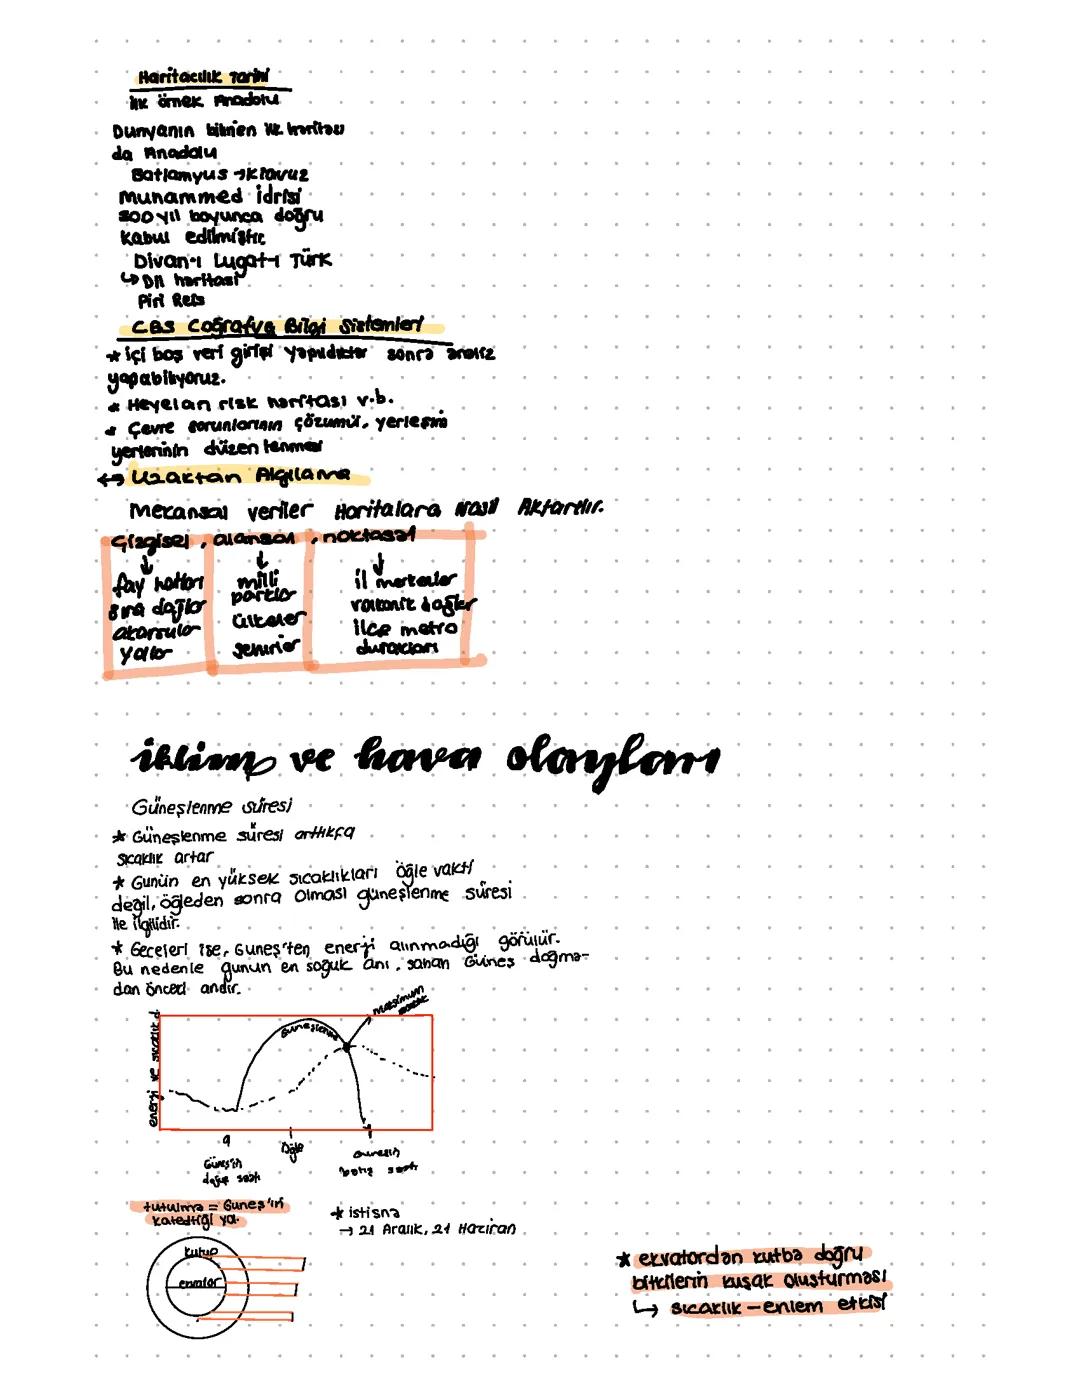 Haritacılık Tarihi
ilk örnek Anadolu
Dunyanın bilinen ilk haritası
da Anadolu
Batlamyus → Klavuz
Muhammed idrisi
300 yıl boyunca doğru
Kabul edilmiştir
Divan-ı Lugat-ı Türk
↳ Dil haritası
Piri Reis
CBS Coğrafya Bilgi Sistemleri
* içi boş veri girişi yapıldıktan sonra analiz
yapabiliyoruz.
* Heyelan risk haritası v.b.
* Çevre sorunlarının çözümü, yerleşim
yerlerinin düzenlenmesi
↔ Uzaktan Algılama
Mekansal veriler Haritalara Nasıl Aktarılır.
Çizgisel, alansal, noktasal
fay hatları milli il merkezler
sıra dağlar parklar volkanik dağlar
akarsular ülkeler ilçe metro
yollar şehirler durakları
iklim ve hava olayları
Güneşlenme süresi
* Güneşlenme süresi arttıkça
sıcaklık artar
* Günün en yüksek sıcaklıkları öğle vakti
değil, öğleden sonra olması güneşlenme süresi
ile ilgilidir.
* Geceleri ise, Güneş'ten enerji alınmadığı görülür.
Bu nedenle günün en soğuk anı, sabah Güneş doğma-
dan önceki andır.
maksimum
sıcaklık
Güneşlenme
enerji ve sıcaklık
Güneş'in
doğuş saati
Öğle
Güneşin
batış saati
tutulma = Güneş'in
katettiği yol.
* istisna
→ 21 Aralık, 21 Haziran
kutup
ekvator
* ekvatordan kutba doğru
bitkilerin kuşak oluşturması
↳ sıcaklık - enlem etkisi